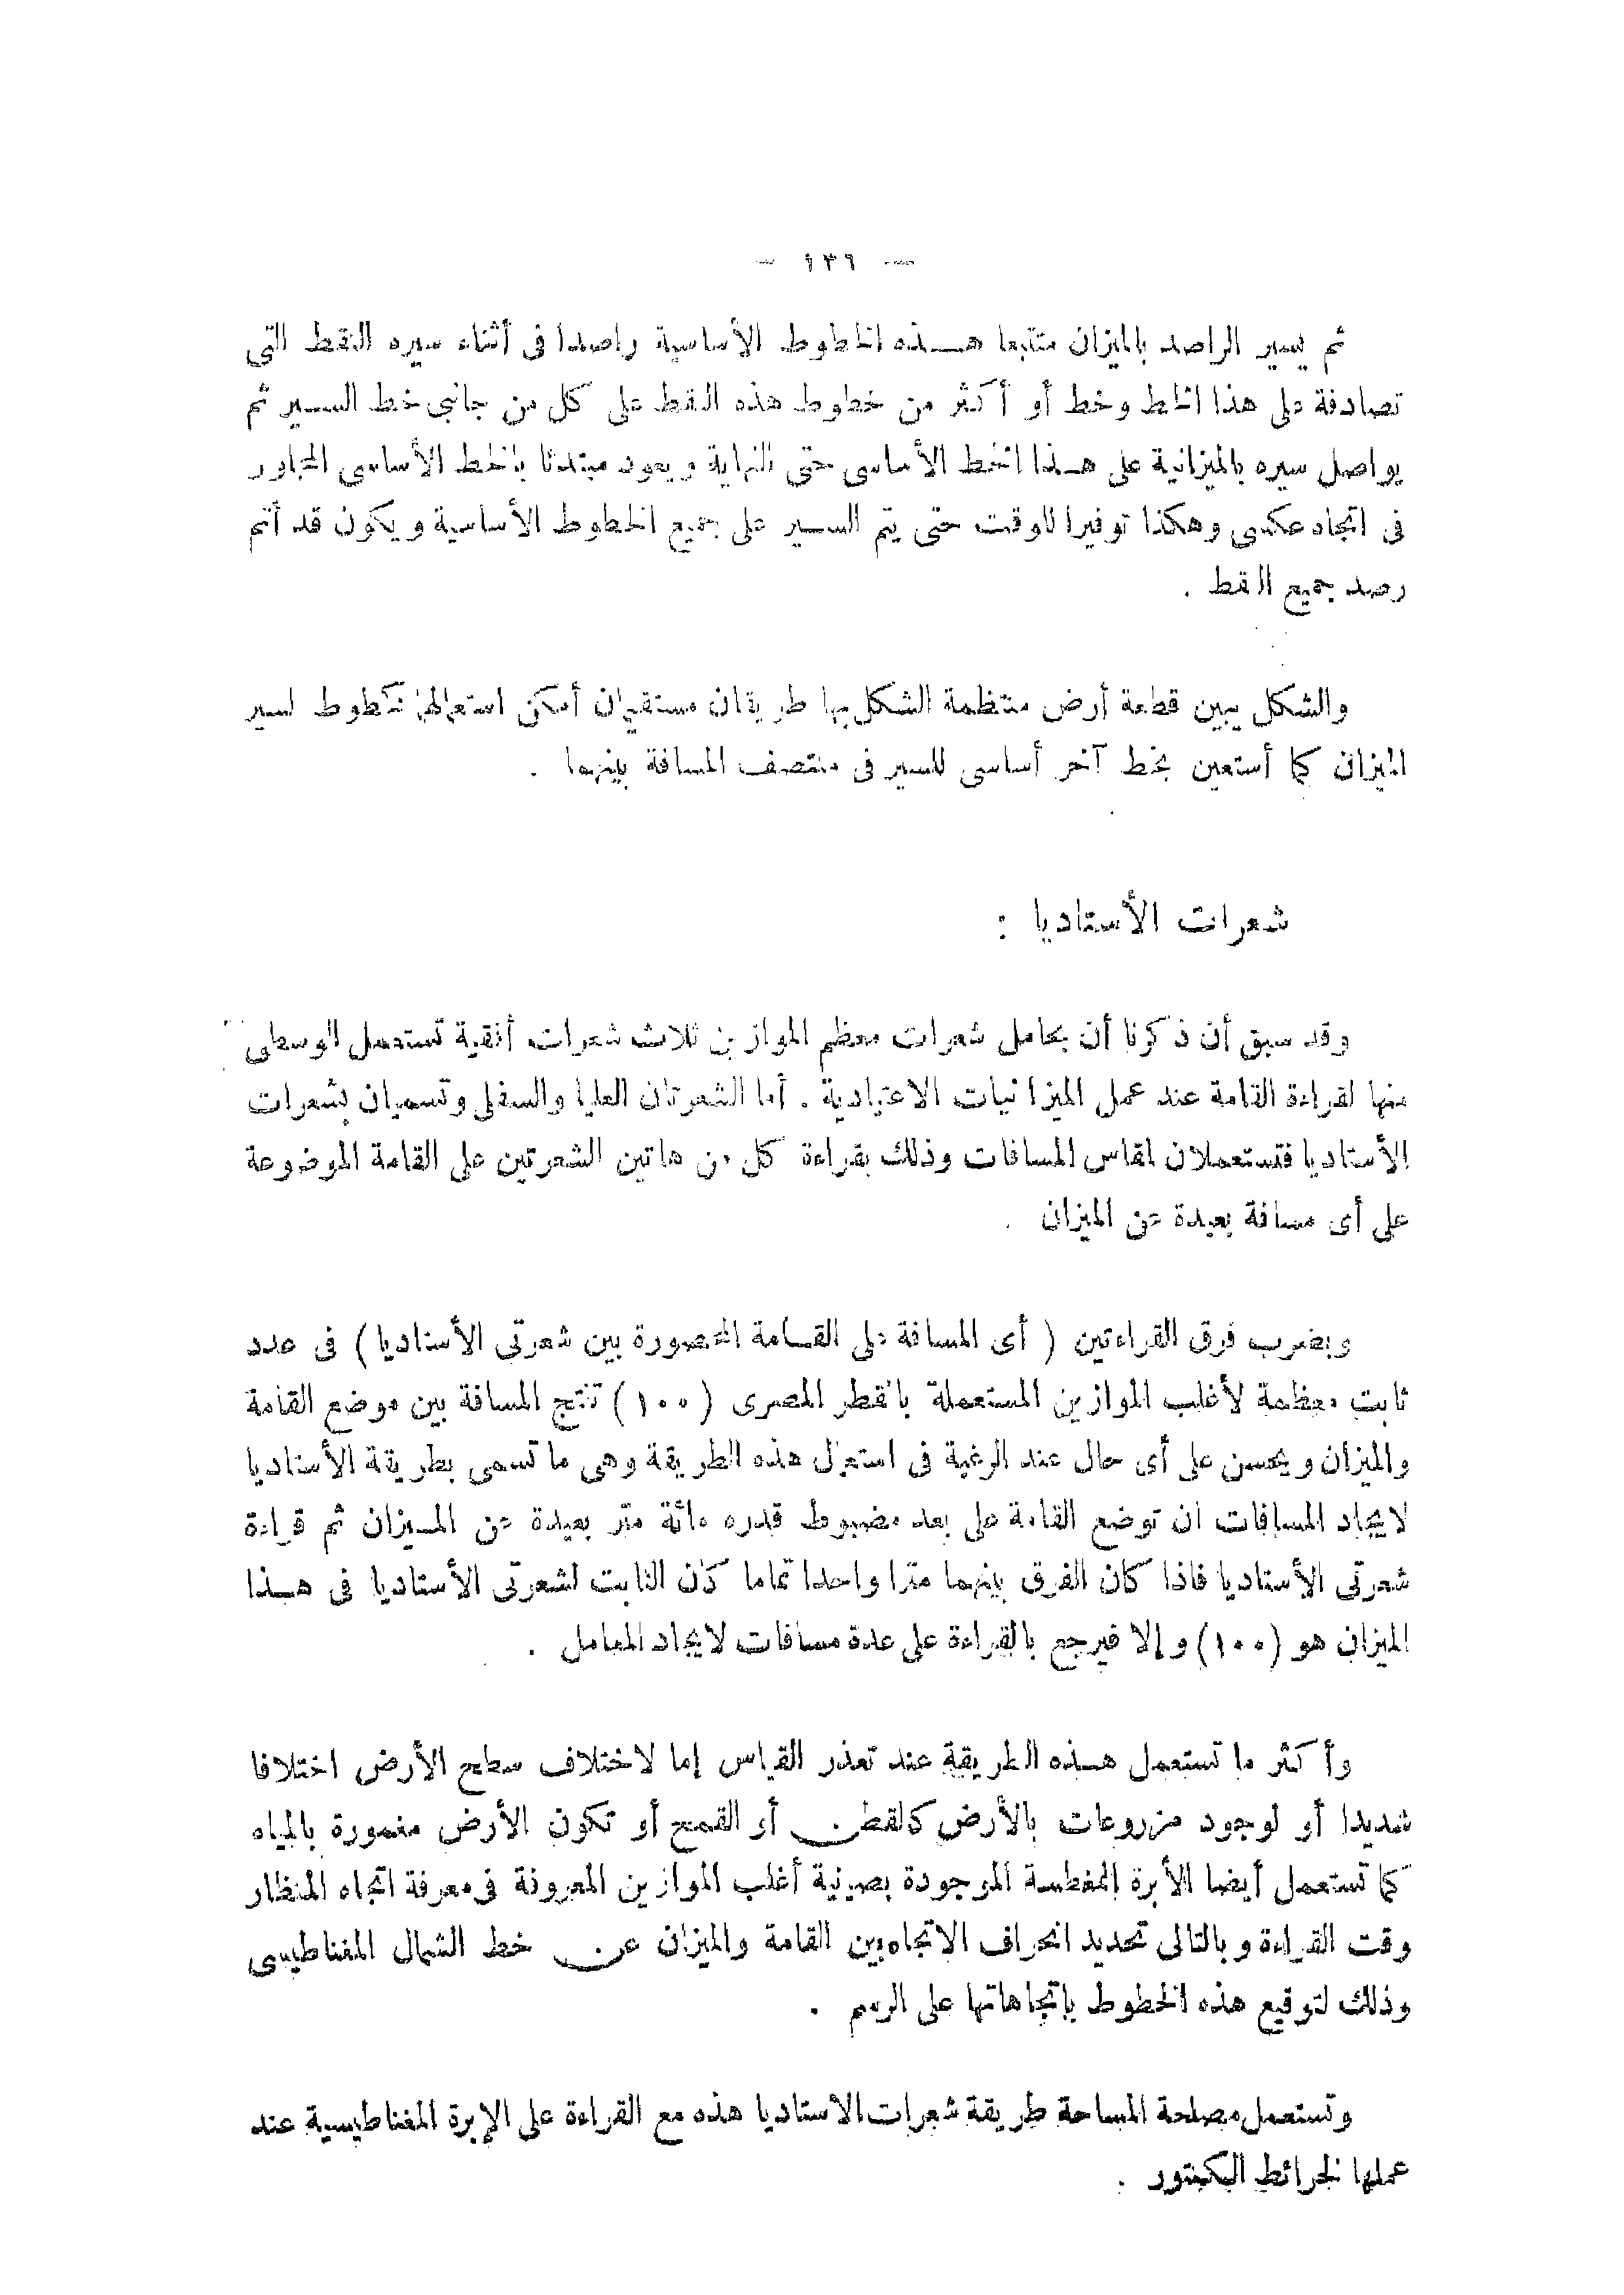 — ١٣٦ —
ثم يسير الراصد بالميزان متتبعا هذه الخطوط الأساسية راصدا فى أثناء سيره النقط التى
تصادفة على هذا الخط وخط أو أكثر من خطوط هذه النقط على كل من جانبى خط السير ثم
يواصل سيره بالميزانية على هذا الخط الأساسى حتى النهاية ويعود مبتدئا بالخط الأساسى المجاور
فى اتجاه عكسى وهكذا توفيرا للوقت حتى يتم السير على جميع الخطوط الأساسية ويكون قد أتم
رصد جميع النقط .
والشكل يبين قطعة أرض منتظمة الشكل بها طريقان مستقيمان أمكن استعمالهما كخطوط لسير
الميزان كما أستعين بخط آخر أساسى للسير فى منتصف المسافة بينهما .
شعرات الأستاديا :
وقد سبق أن ذكرنا أن بحامل شعرات معظم الموازين ثلاث شعرات أفقية تستعمل الوسطى
منها لقراءة القامة عند عمل الميزانيات الاعتيادية . أما الشعرتان العليا والسفلى وتسميان بشعرات
الأستاديا فتستعملان لقاس المسافات وذلك بقراءة كل من هاتين الشعرتين على القامة الموضوعة
على أى مسافة بعيدة عن الميزان .
وبضرب فرق القراءتين ( أى المسافة على القامة المحصورة بين شعرتى الأستاديا ) فى عدد
ثابت معظمة لأغلب الموازين المستعملة بالقطر المصرى (١٠٠) تنتج المسافة بين موضع القامة
والميزان ويحسن على أى حال عند الرغبة فى استعمال هذه الطريقة وهى ما تسمى بطريقة الأستاديا
لايجاد المسافات ان توضع القامة على بعد مضبوط قدره مائة متر بعيدة عن الميزان ثم قراءة
شعرتى الأستاديا فاذا كان الفرق بينهما مترا واحدا تماما كان الثابت لشعرتى الأستاديا فى هذا
الميزان هو (١٠٠) وإلا فيرجع بالقراءة على عدة مسافات لايجاد المعامل .
وأكثر ما تستعمل هذه الطريقة عند تعذر القياس إما لاختلاف سطح الأرض اختلافا
شديدا أو لوجود مزروعات بالأرض كالقطن أو القمح أو تكون الأرض مغمورة بالمياه
كما تستعمل أيضا الأبرة المغطسة الموجودة بصينية أغلب الموازين المعروفة فى معرفة اتجاه المنظار
وقت القراءة وبالتالى تحديد انحراف الاتجاه بين القامة والميزان عن خط الشمال المغناطيسى
وذلك لتوقيع هذه الخطوط بإتجاهاتها على الرسم .
وتستعمل مصلحة المساحة طريقة شعرات الاستاديا هذه مع القراءة على الإبرة المغناطيسية عند
عملها لخرائط الكنتور .